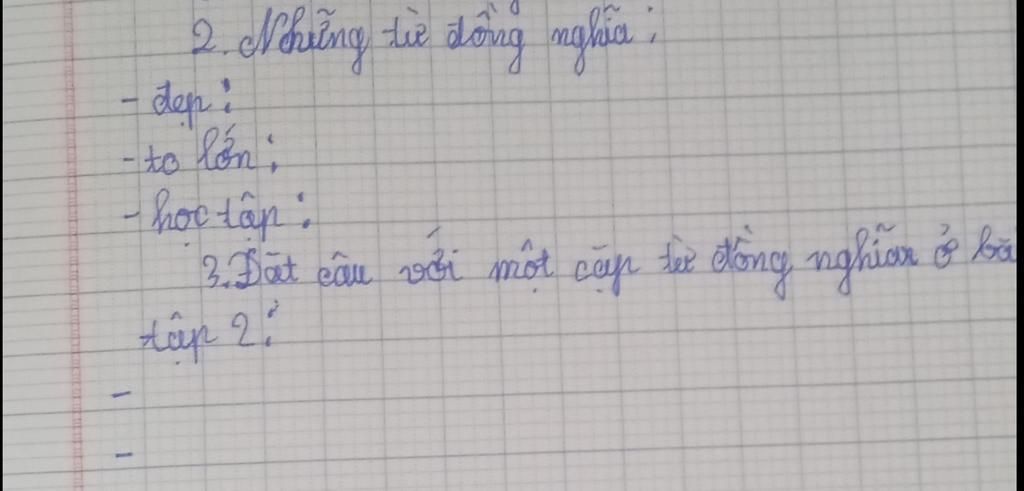 2. Những từ đồng nghĩa:
- đẹp:
- to lớn:
- học tập:
3. Đặt câu với một cặp từ đồng nghĩa ở bà
tập 2:
-
-